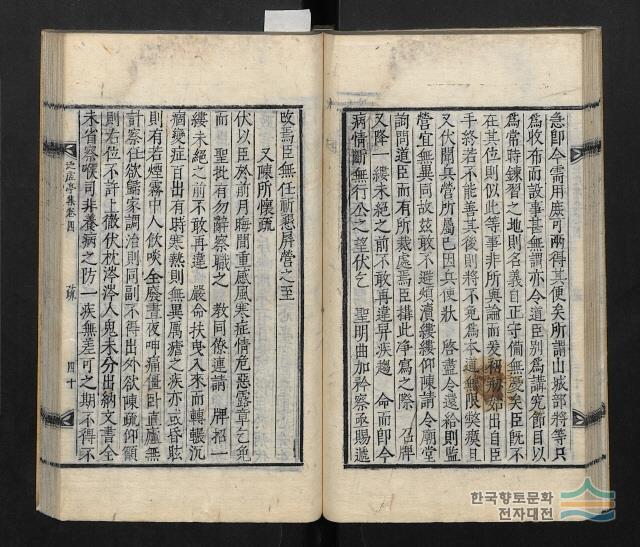 急卽今需用庶可兩得其便矣所謂山城部將等只
爲收布而設事甚無謂亦令道臣別爲講究節目以
爲常時鍊習之地則名義自正守備無憂矣臣旣不
在其位則似此等事非所與論而爰初始出自臣
手終若不能善其後則將不免爲本道無限弊瘼且
又伏聞兵營所屬已因兵使狀 啓盡令還給則監
營宜無異同故玆敢不避煩瀆縷縷仰陳請 令廟堂
詢問道臣而有所裁處焉臣搆此淨寫之際 召牌
又降一縷未絶之前不敢再違舁疾趨 命而卽今
病情斷無行公之望伏乞 聖明曲加矜察亟賜遞
改焉臣無任祈懇屛營之至
又陳所懷疏
伏以臣於前月晦間重感風寒症情危惡露章乞免
而 聖批有勿辭察職之 敎同僚連請 牌招一
縷未絶之前不敢再違 嚴命扶曳入來而轉輾沉
痼變症百出有時寒熱則無異厲瘧之疾亦或昏眩
則有若煙霧中人飮啖全廢晝夜呻痛僵臥直廬無
計察任欲歸家調治則同副不得出外欲陳疏仰籲
則右位不許上徹伏枕涔涔人鬼未分出納文書全
未省察喉司非養病之防一疾無差可之期不得不
卷四
疏
四十
한국향토문화
전자대전